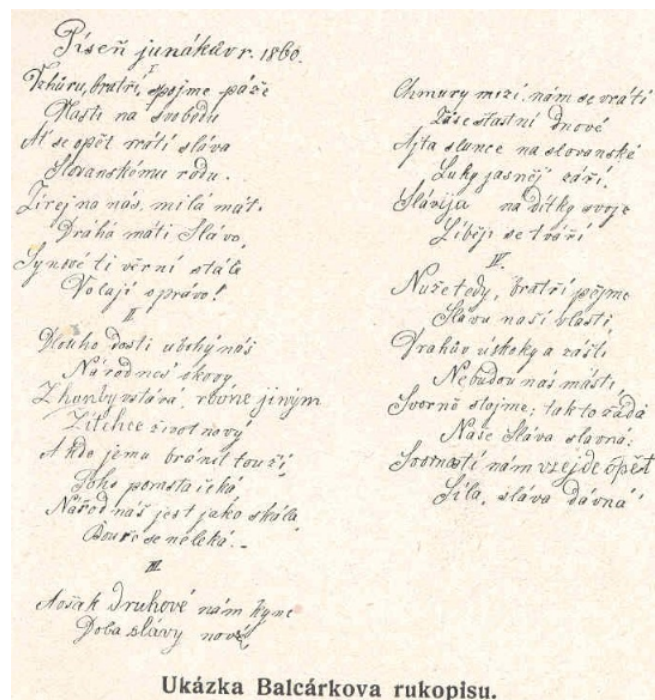 Píseň junákův r. 1860.
I
Vzhůru, bratři, spojme páže
Vlasti na svobodu
Ať se opět vrátí sláva
Slovanskému rodu.
Zírej na nás, milá máti
Drahá máti Slávo,
Synové ti věrní stále
Volají o právo!
II.
Dlouho dosti ubohý náš
Národ nes' okovy
Z hanby vstává, rovně jiným
Zítchce život nový
A kdo jemu bránit touží
Toho pomsta čeká,
Národ náš jest jako skála
Bouře se neleká. –
III.
Avšak druhové nám kyne
Doba slávy nové
Chmury mizí, nám se vrátí
Záse šťastní dnové
Ajta slunce na slovanské
Luhy jasněj' září,
Slávija na dítky svoje
Líběji se tváří
IV.
Nuže tedy, bratří pějme
Slávu naší vlasti,
Vrahův úskoky a zášti
Nebudou nás másti,
Svorně stojme; tak to žádá
Naše Sláva slavná:
Svorností nám vzejde opět
Síla, sláva dávná
Ukázka Balcárkova rukopisu.